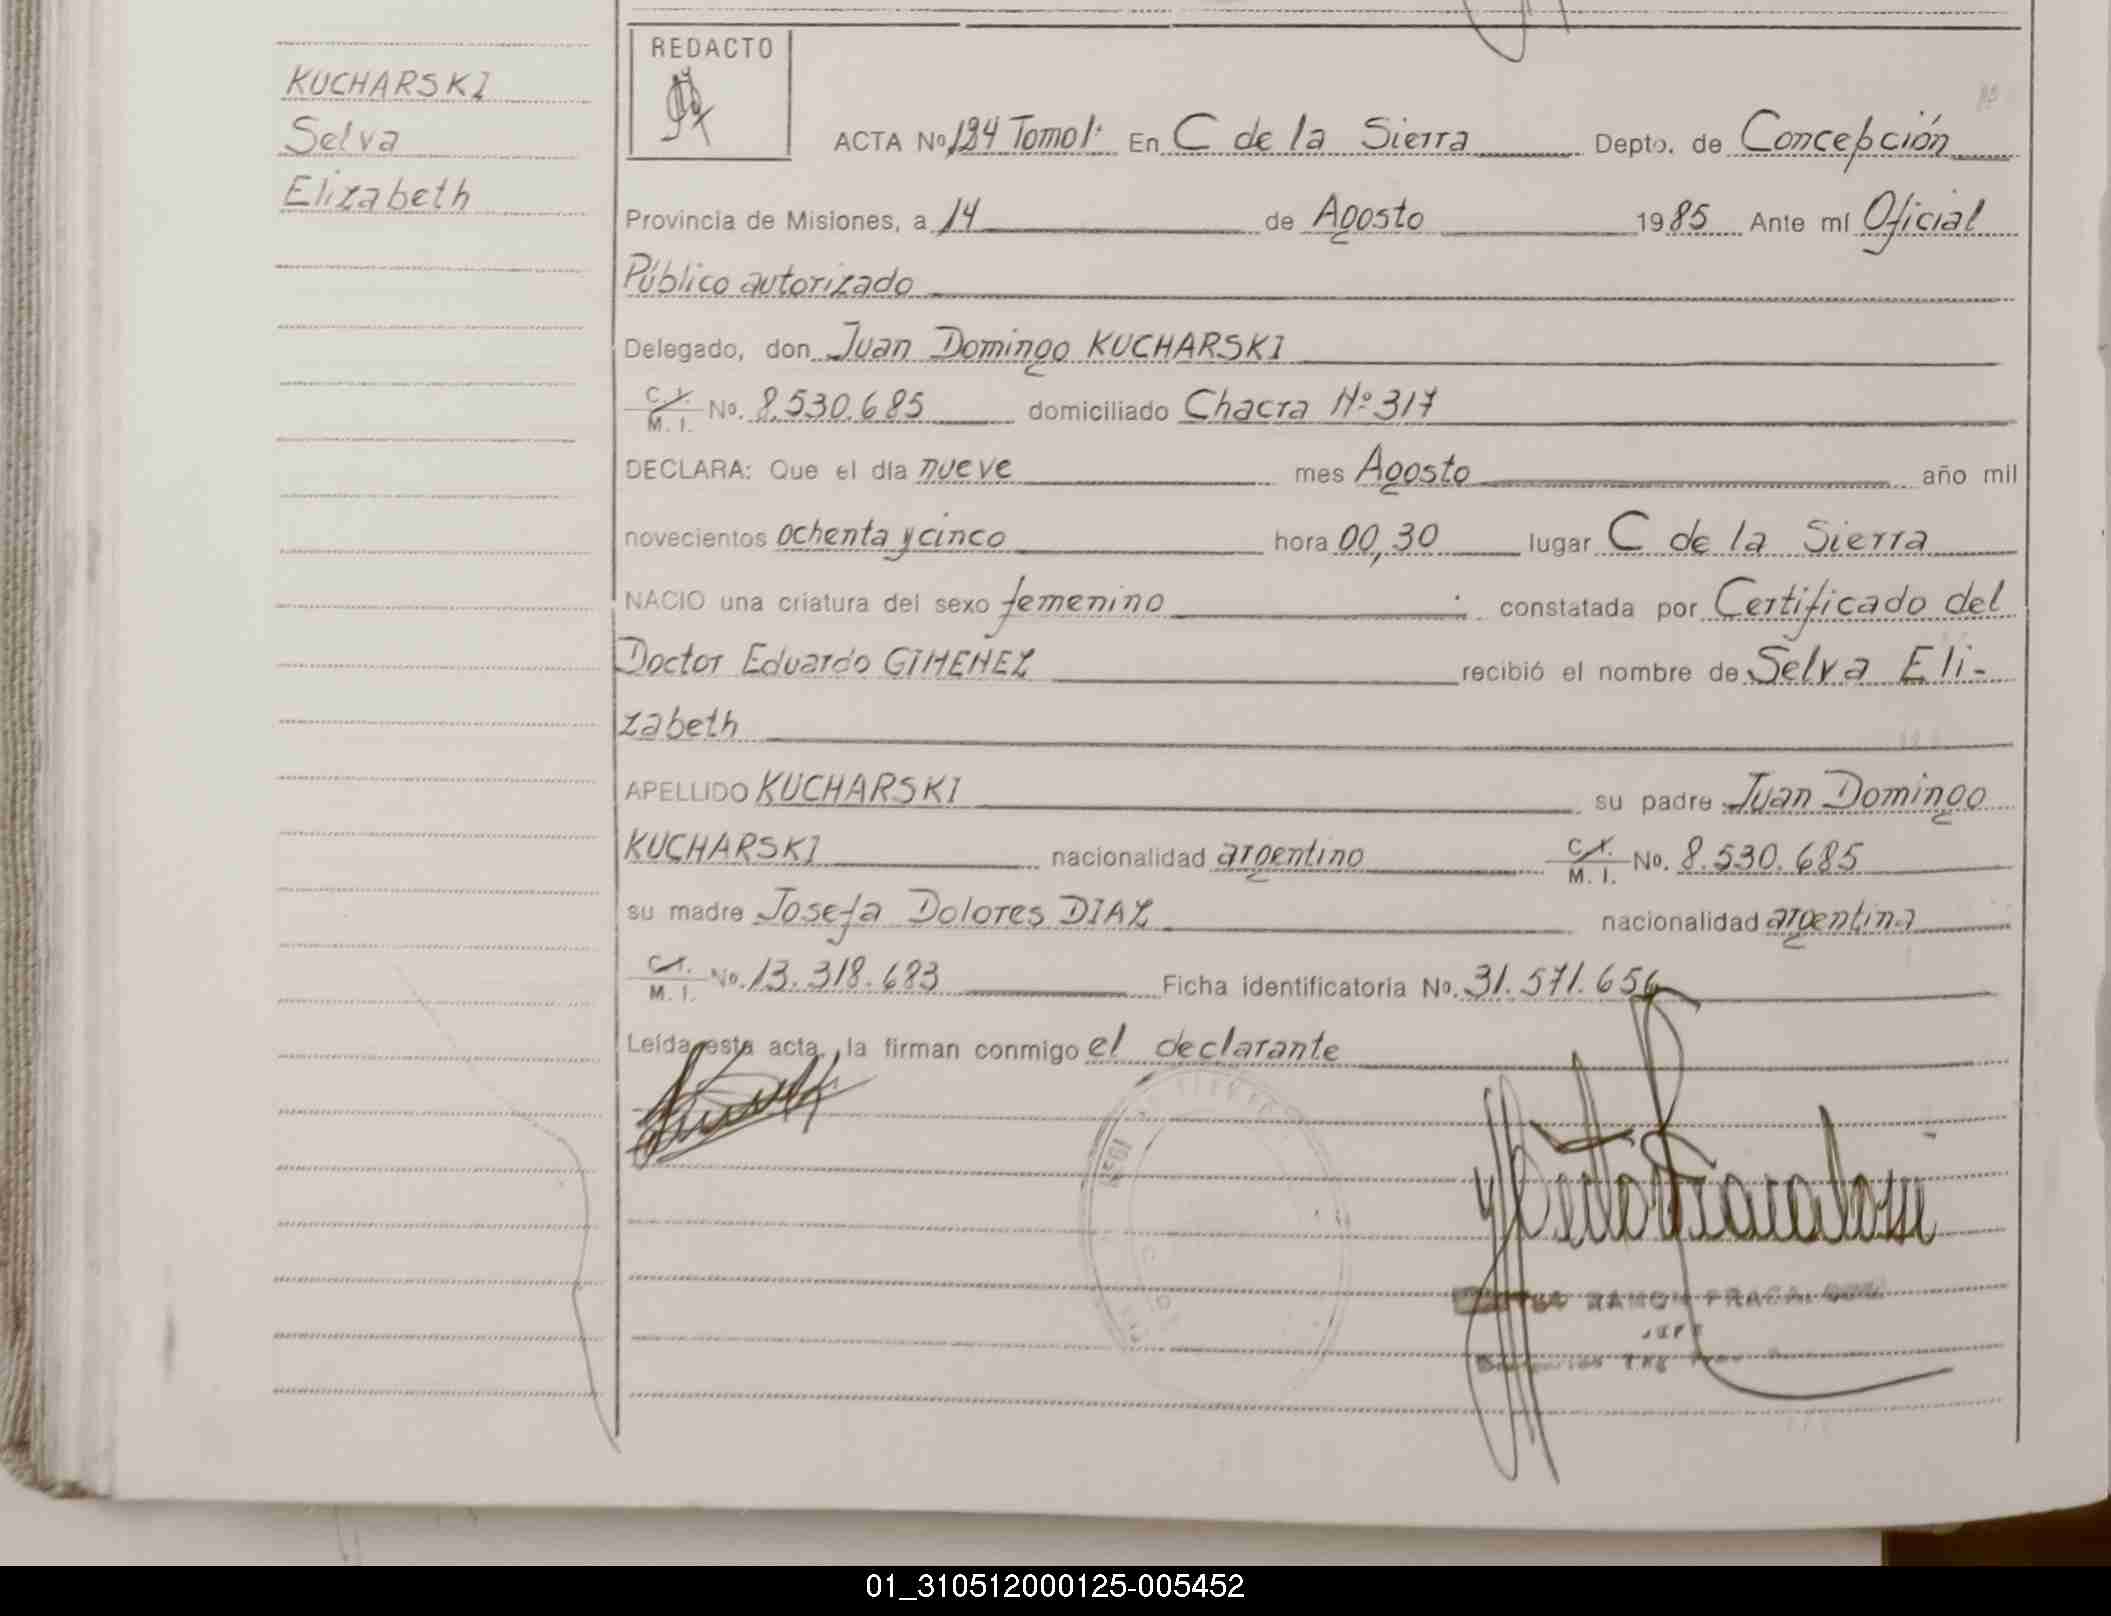 KUCHARSKI
Selva
Elizabeth
REDACTO
ACTA No 124 Tomo 1: En C de la Sierra Depto. de Concepción
Provincia de Misiones, a 14 de Agosto 1985 Ante mí Oficial
Público autorizado
Delegado, don Juan Domingo KUCHARSKI
C.I. M.I. No. 8.530.685 domiciliado Chacra Nº 317
DECLARA: Que el día nueve mes Agosto año mil
novecientos ochenta y cinco hora 00,30 lugar C de la Sierra
NACIO una criatura del sexo femenino constatada por Certificado del
Doctor Eduardo GIMENEZ recibió el nombre de Selva Eli-
zabeth
APELLIDO KUCHARSKI su padre Juan Domingo
KUCHARSKI nacionalidad argentino C.I. M.I. No. 8.530.685
su madre Josefa Dolores DIAZ nacionalidad argentina
C.I. M.I. No. 13.318.683 Ficha identificatoria No. 31.571.656
Leída esta acta, la firman conmigo el declarante
RAMON
01_310512000125-005452